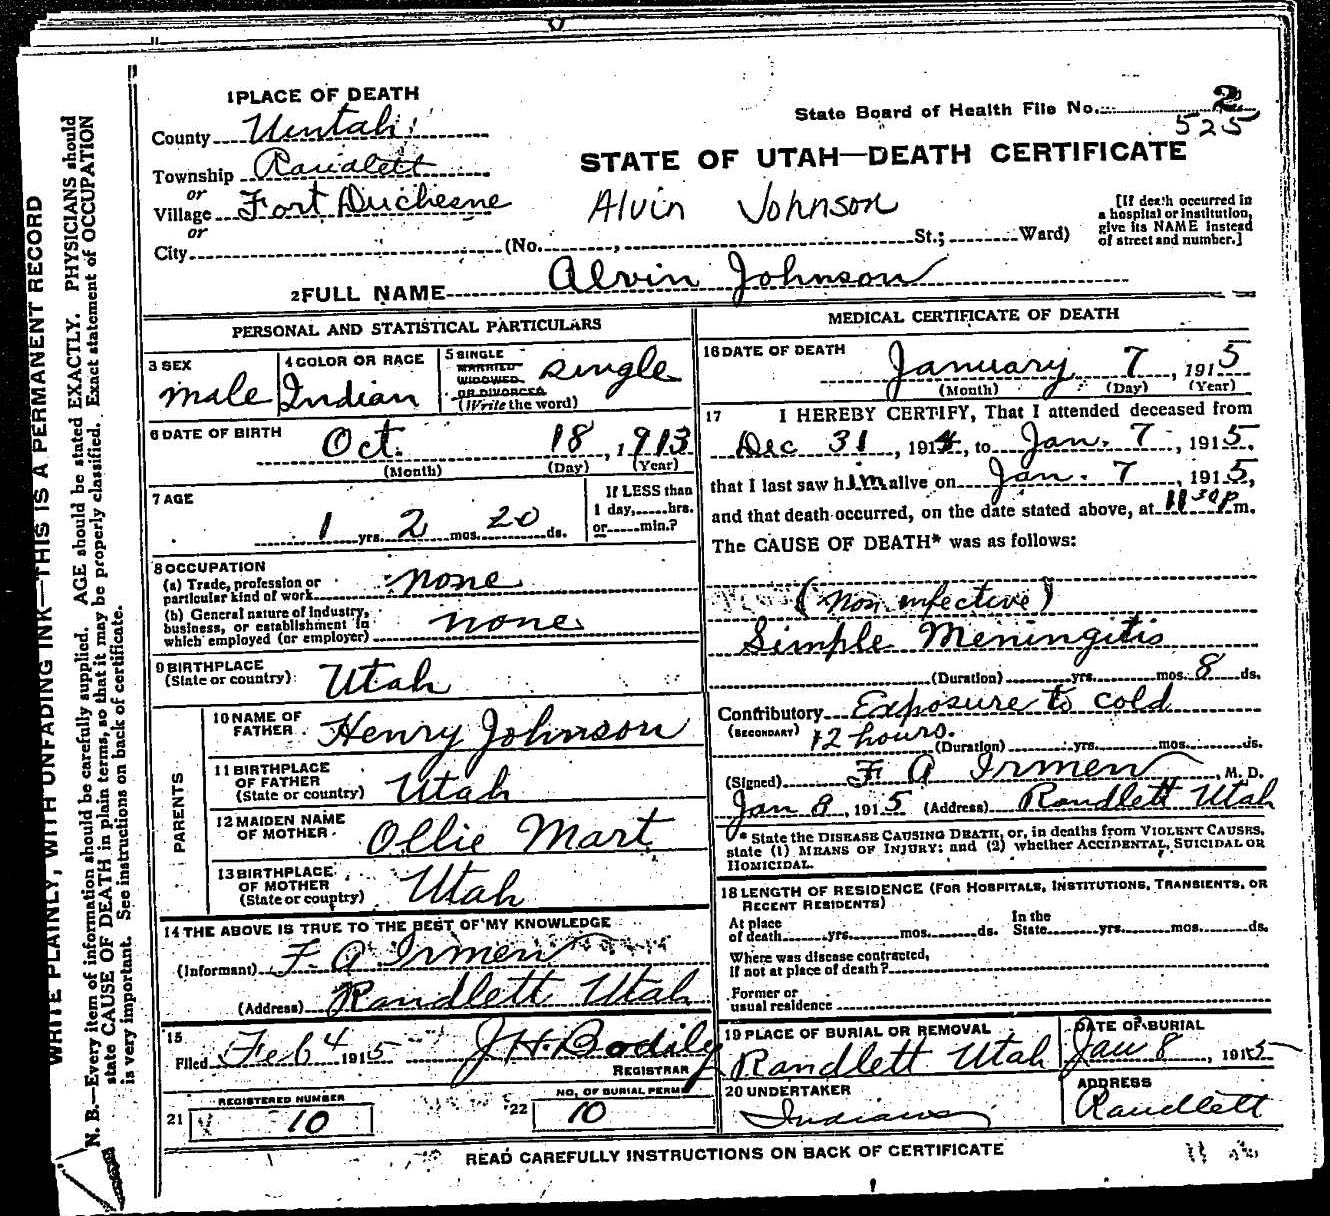 1 PLACE OF DEATH
County Uintah
Township Randlett
or
Village Fort Duchesne
or
City (No. , St.; Ward)
State Board of Health File No. 2
525
STATE OF UTAH—DEATH CERTIFICATE
Alvin Johnson
[If death occurred in
a hospital or institution,
give its NAME instead
of street and number.]
2 FULL NAME Alvin Johnson
PERSONAL AND STATISTICAL PARTICULARS
3 SEX
male
4 COLOR OR RACE
Indian
5 SINGLE
MARRIED
WIDOWED
OR DIVORCED
(Write the word)
single
6 DATE OF BIRTH
Oct. 18, 1913
(Month) (Day) (Year)
7 AGE
1 yrs. 2 mos. 20 ds.
If LESS than
1 day, hrs.
or min.?
8 OCCUPATION
(a) Trade, profession or
particular kind of work none
(b) General nature of industry,
business, or establishment in
which employed (or employer) none
9 BIRTHPLACE
(State or country) Utah
PARENTS
10 NAME OF
FATHER Henry Johnson
11 BIRTHPLACE
OF FATHER
(State or country) Utah
12 MAIDEN NAME
OF MOTHER Ollie Mart
13 BIRTHPLACE
OF MOTHER
(State or country) Utah
14 THE ABOVE IS TRUE TO THE BEST OF MY KNOWLEDGE
(Informant) F. A. Irmen
(Address) Randlett Utah
15
Filed Feb 4 1915 J H Bodily
REGISTRAR
21 REGISTERED NUMBER
10
22 NO. OF BURIAL PERMIT
10
MEDICAL CERTIFICATE OF DEATH
16 DATE OF DEATH
January 7, 1915
(Month) (Day) (Year)
17 I HEREBY CERTIFY, That I attended deceased from
Dec 31, 1914, to Jan. 7, 1915,
that I last saw him alive on Jan. 7, 1915,
and that death occurred, on the date stated above, at 11 30 P m.
The CAUSE OF DEATH* was as follows:
(Non infective)
Simple Meningitis
(Duration) yrs. mos. 8 ds.
Contributory Exposure to cold
(SECONDARY) 12 hours. (Duration) yrs. mos. ds.
(Signed) F A Irmen, M. D.
Jan 8, 1915 (Address) Randlett Utah
* State the DISEASE CAUSING DEATH, or, in deaths from VIOLENT CAUSES,
state (1) MEANS OF INJURY; and (2) whether ACCIDENTAL, SUICIDAL OR
HOMICIDAL.
18 LENGTH OF RESIDENCE (FOR HOSPITALS, INSTITUTIONS, TRANSIENTS, OR
RECENT RESIDENTS)
At place
of death yrs. mos. ds. In the
State yrs. mos. ds.
Where was disease contracted,
if not at place of death?
Former or
usual residence
19 PLACE OF BURIAL OR REMOVAL
Randlett Utah
DATE OF BURIAL
Jan 8, 1915
20 UNDERTAKER
Indians
ADDRESS
Randlett
READ CAREFULLY INSTRUCTIONS ON BACK OF CERTIFICATE
WRITE PLAINLY, WITH UNFADING INK—THIS IS A PERMANENT RECORD
N. B.—Every item of information should be carefully supplied. AGE should be stated EXACTLY. PHYSICIANS should
state CAUSE OF DEATH in plain terms, so that it may be properly classified. Exact statement of OCCUPATION
is very important. See instructions on back of certificate.